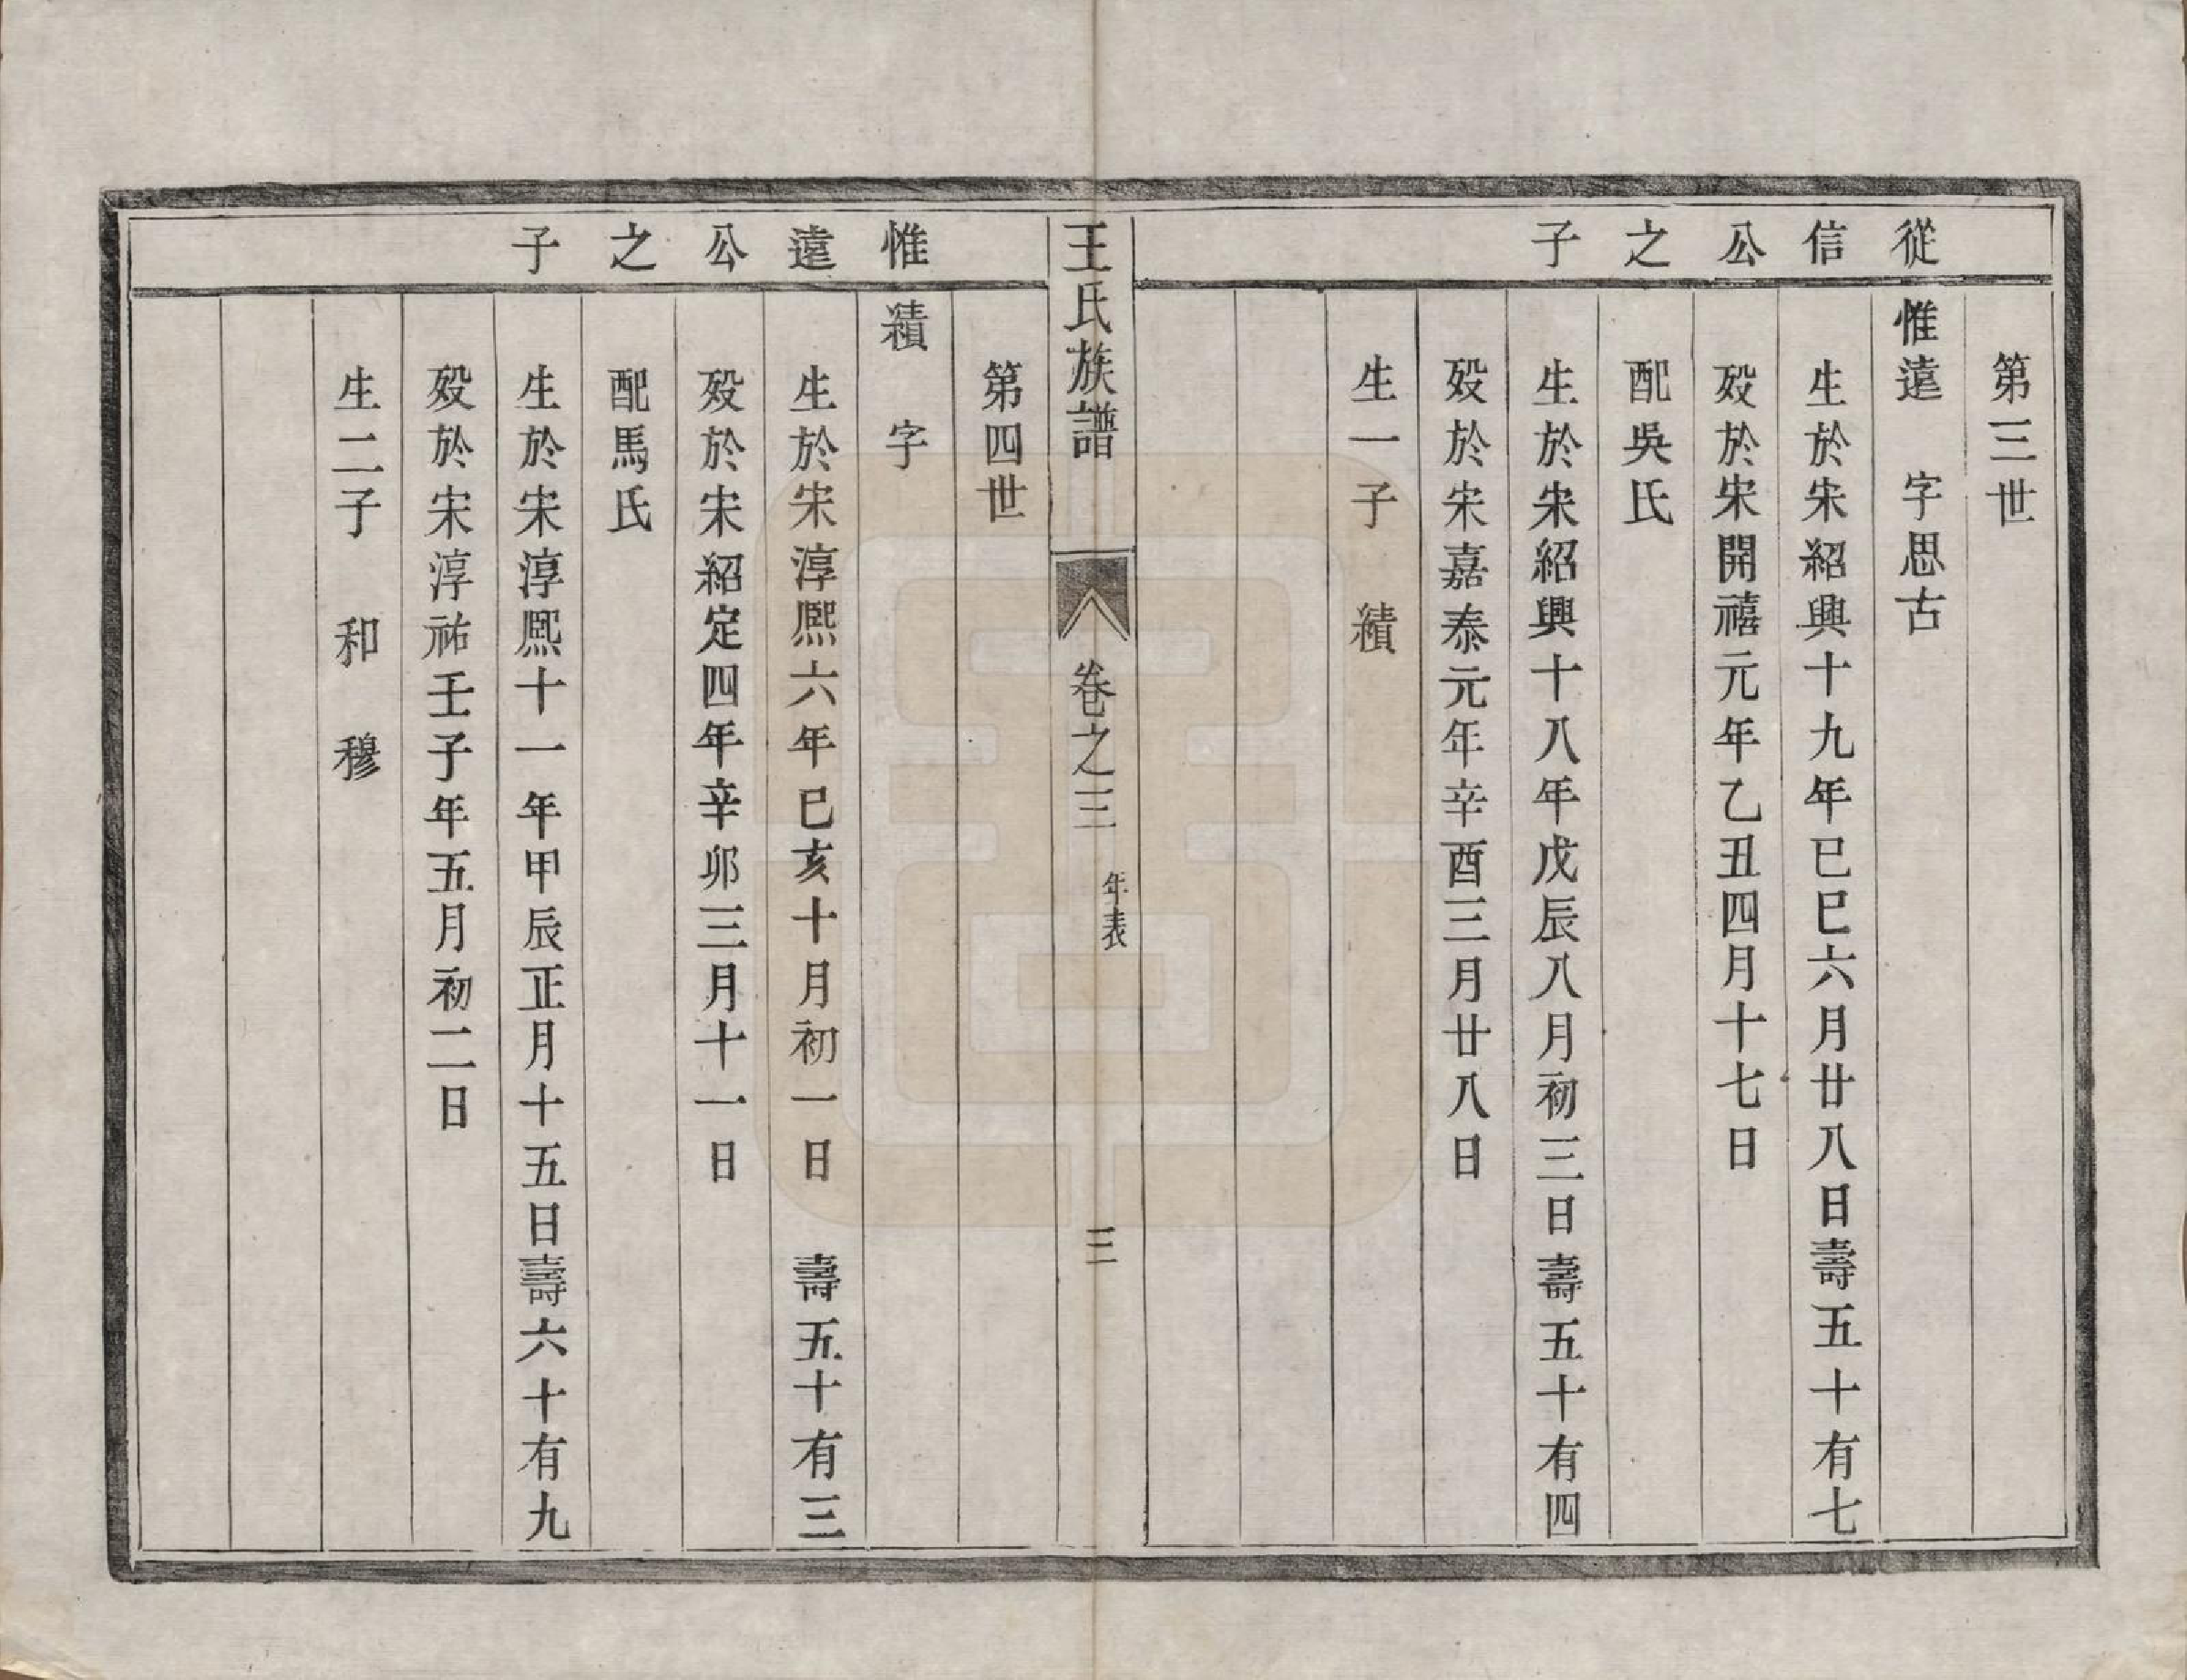 從信公之子
第三世
惟遠　字思古
生於宋紹興十九年已巳六月廿八日壽五十有七
歿於宋開禧元年乙丑四月十七日
配吳氏
生於宋紹興十八年戊辰八月初三日壽五十有四
歿於宋嘉泰元年辛酉三月廿八日
生一子　績
王氏族譜　卷之三　年表　三
惟遠公之子
第四世
績　字
生於宋淳熙六年已亥十月初一日　壽五十有三
歿於宋紹定四年辛卯三月十一日
配馬氏
生於宋淳熙十一年甲辰正月十五日壽六十有九
歿於宋淳祐壬子年五月初二日
生二子　和　穆